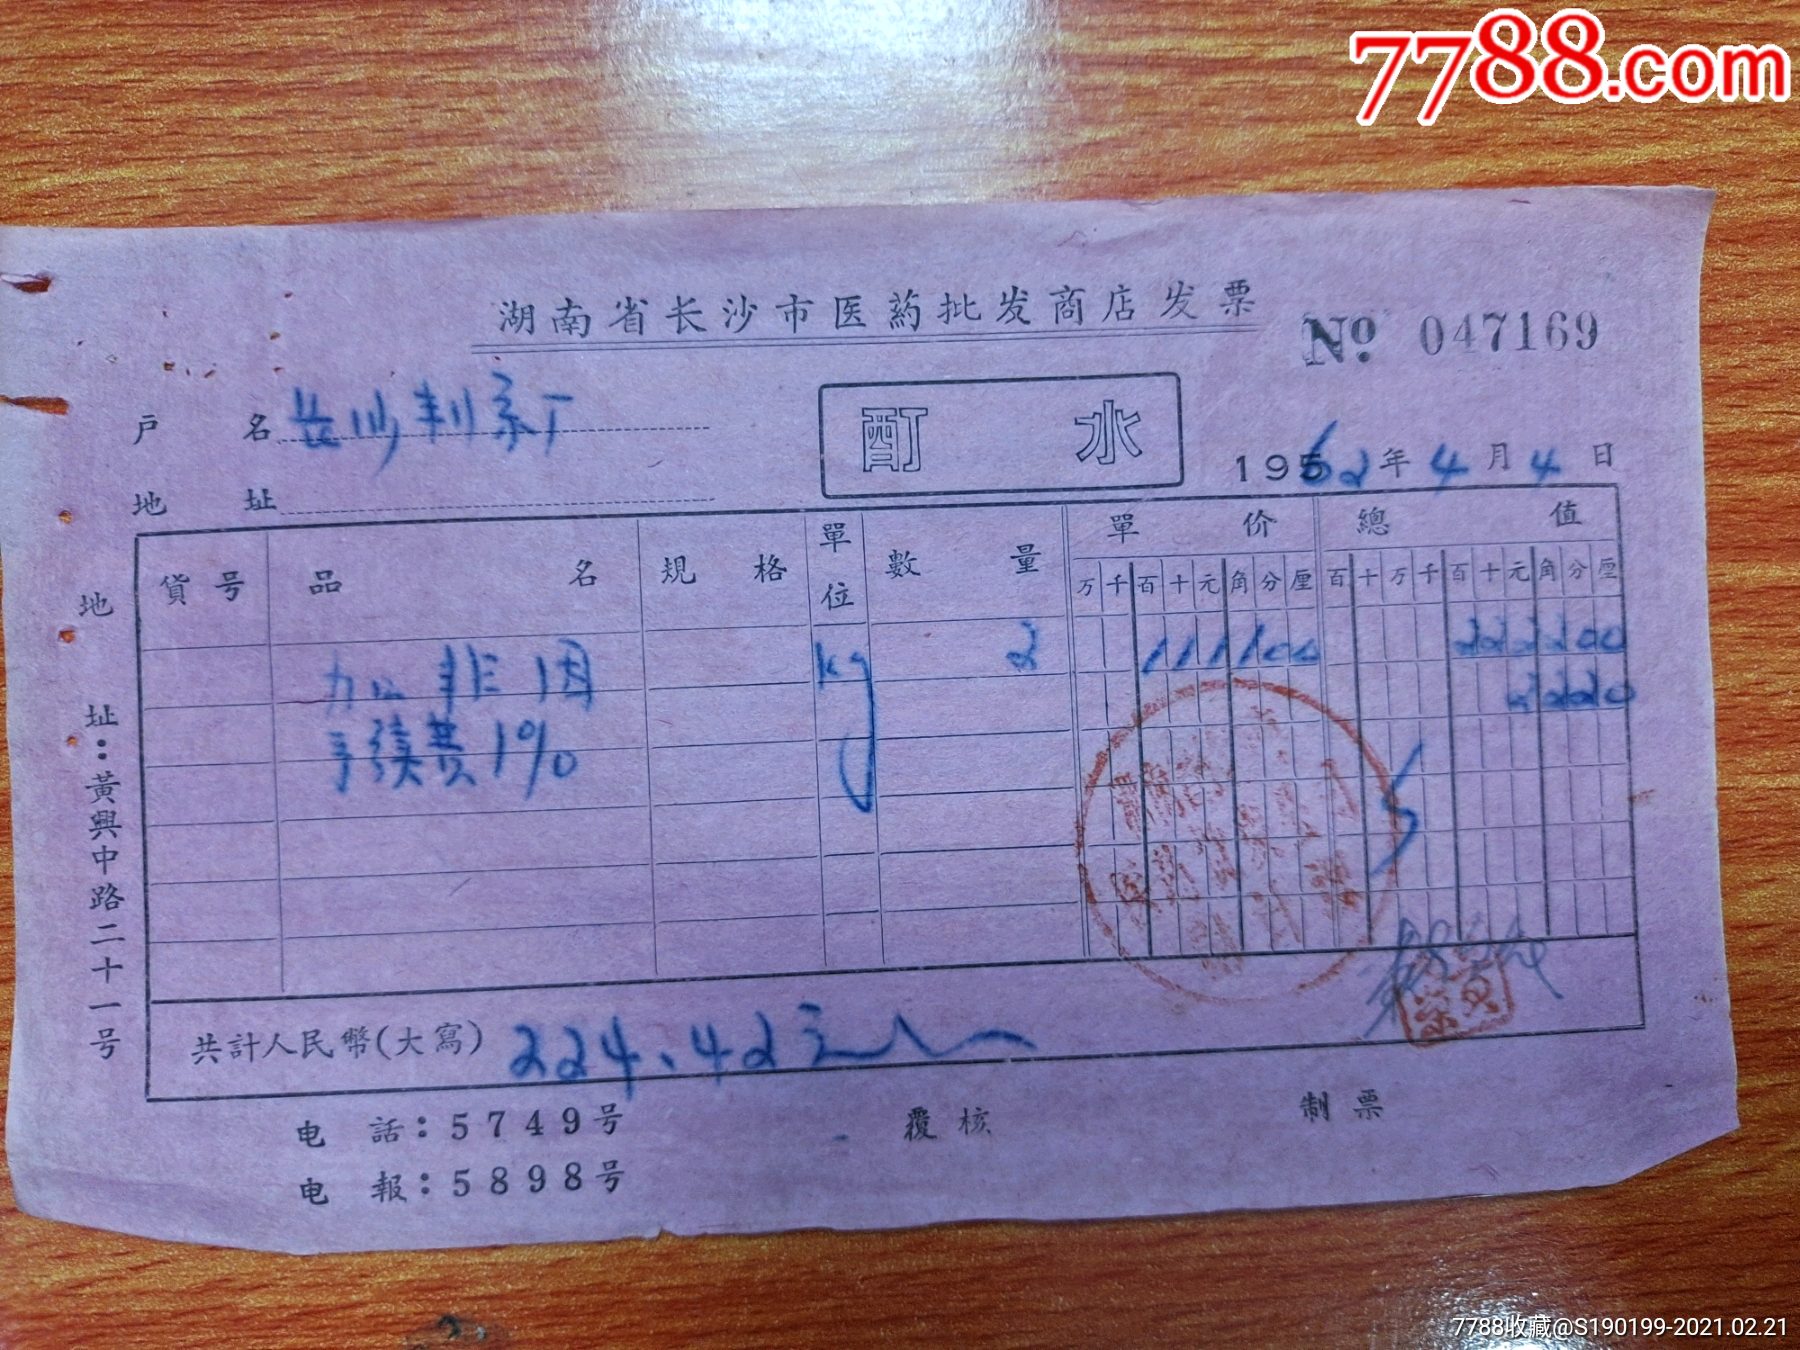 7788.com
湖南省长沙市医药批发商店发票
No. 047169
户 名 长沙制药厂
酊 水
1962年4月4日
地 址
貨号 品名 規格 單位 數量 單价 總值
万千百十元角分厘 百十万千百十元角分厘
加非因 kg 2 111100 222200
手续费1% 2220
共計人民幣(大寫) 224.42元
地址:黃興中路二十一号
电 話:5749号
覆核
制票
电 報:5898号
7788收藏@S190199-2021.02.21